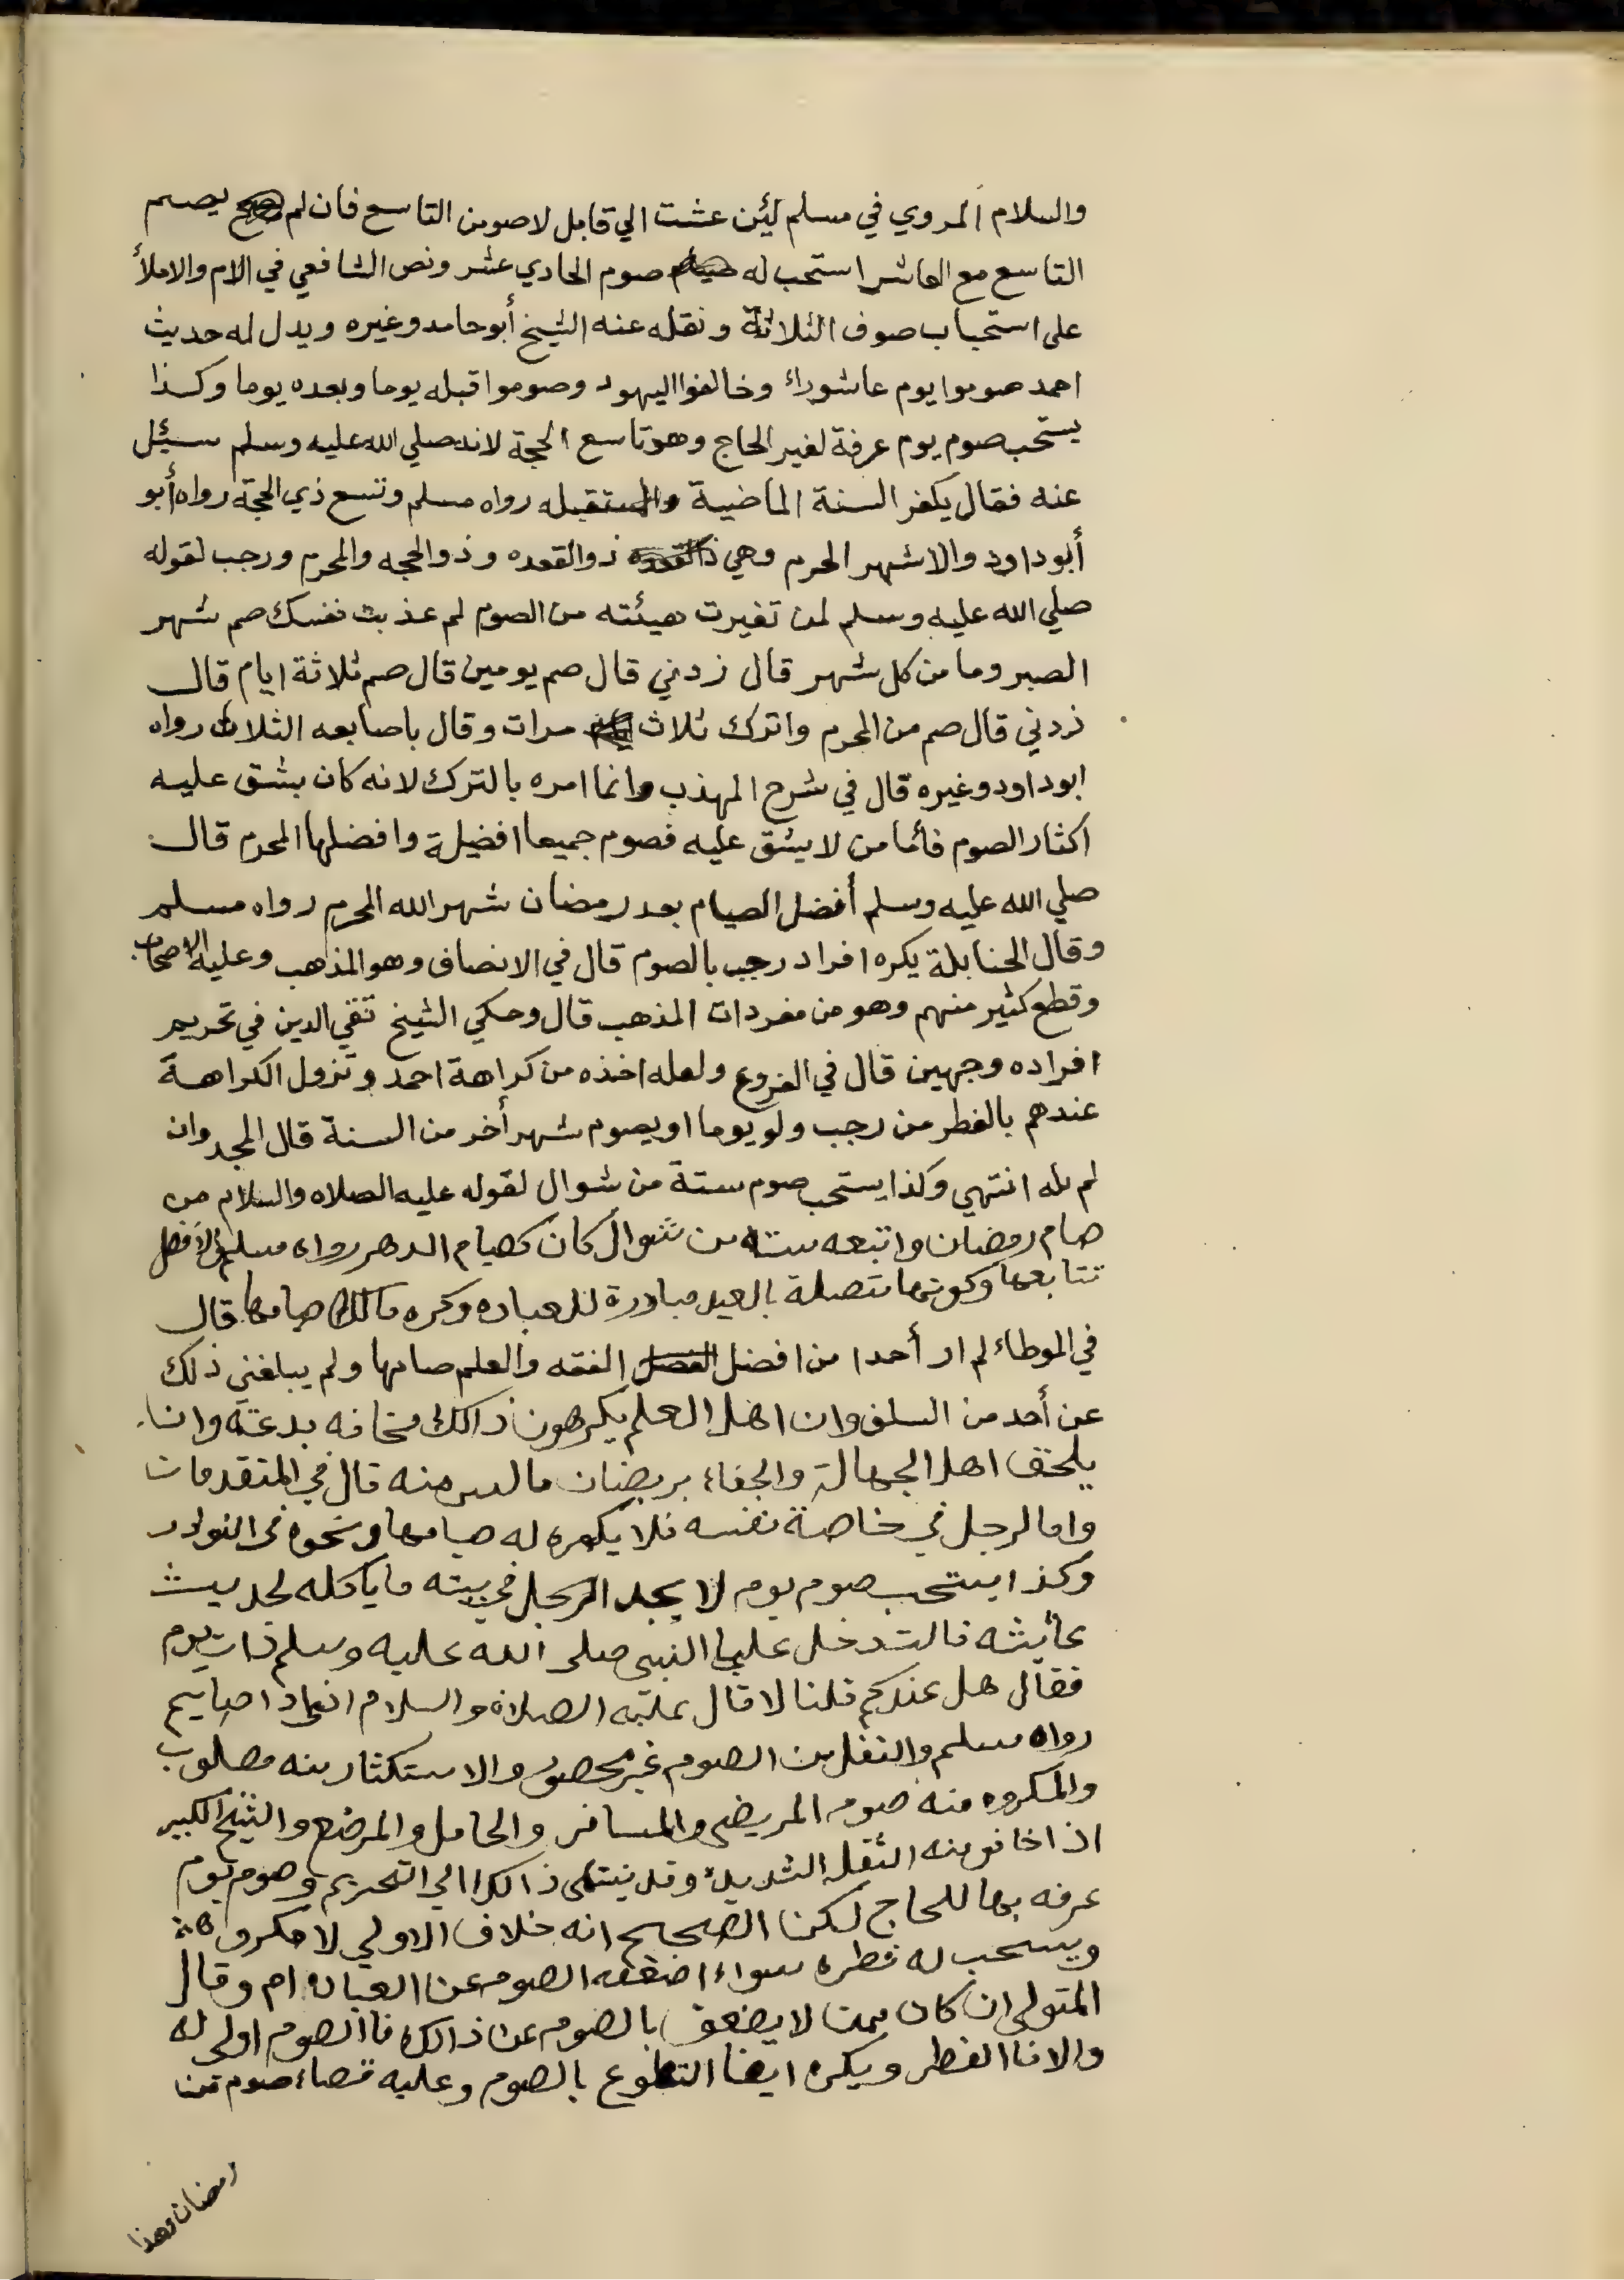 والسلام المروي في مسلم لئن عشت الي قابل لاصومن التاسع فان لم يصم
التاسع مع العاشر استحب له صوم الحادي عشر ونص الشافعي في الام والاملأ
على استحباب صوف الثلاثة ونقله عنه الشيخ أبو حامد وغيره ويدل له حديث
احمد صوموا يوم عاشوراء وخالفوا اليهود وصوموا قبله يوما وبعده يوما وكذا
يستحب صوم يوم عرفة لغير الحاج وهو تاسع الحجة لانه صلي الله عليه وسلم سئيل
عنه فقال يكفر السنة الماضية والمستقبله رواه مسلم وتسع ذي الحجة رواه أبو
أبو داود والاشهر الحرم وهي ذو القعده وذو الحجه والمحرم ورجب لقوله
صلي الله عليه وسلم لمن تغيرت هيئته من الصوم لم عذبت نفسك صم شهر
الصبر وما من كل شهر قال زدني قال صم يومين قال صم ثلاثة ايام قال
زدني قال صم من المحرم واترك ثلاث مرات وقال باصابعه الثلاث رواه
ابو داود وغيره قال في شرح المهذب وانما امره بالترك لانه كان يشق عليه
اكثار الصوم فأما من لا يشق عليه فصوم جميعا افضيلة وافضلها المحرم قال
صلي الله عليه وسلم أفضل الصيام بعد رمضان شهر الله المحرم رواه مسلم
وقال الحنابلة يكره افراد رجب بالصوم قال في الانصاف وهو المذهب وعليه الاصحاب
وقطع كثير منهم وهو من مفردات المذهب قال وحكي الشيخ تقي الدين في تحريم
افراده وجهين قال في الفروع ولعله اخذه من كراهة احمد وتزول الكراهة
عندهم بالفطر من رجب ولو يوما او يصوم شهر أخر من السنة قال المجد وان
لم يله انتهي وكذا يستحب صوم ستة من شوال لقوله عليه الصلاه والسلام من
صام رمضان واتبعه سته من شوال كان كصيام الدهر رواه مسلم والافضل
تتابعها وكونها متصلة بالعيد مبادرة للعباده وكره مالك صيامها قال
في الموطاء لم ار أحدا من افضل الفقه والعلم صامها ولم يبلغني ذلك
عن أحد من السلف وان اهل العلم يكرهون ذالك مخافه بدعته وان
يلحق اهل الجهالة والجفاء برمضان ما ليس منه قال في المتقدمات
واما لرجل في خاصة نفسه فلا يكره له صيامها ونحوه في النوادر
وكذا يستحب صوم يوم لا يجد الرجل في بيته ما ياكله لحديث
عائشه قالت دخل علينا النبي صلى الله عليه وسلم ذات يوم
فقال هل عندكم قلنا لا قال عليه الصلاة والسلام اني اذا صاييم
رواه مسلم والنفل من الصوم غير محصور والاستكثار منه مطلوب
والمكروه منه صوم المريض والمسافر والحامل والمرضع والشيخ الكبير
اذا خافو منه الثقل الشديد وقد ينتهى ذالك الي التحريم وصوم يوم
عرفه بها للحاج لكن الصحيح انه خلاف الاولي لا مكروه
ويستحب له فطره سواء اضعفه الصوم عن العباده ام وقال
المتولي ان كان ممن لا يضعف بالصوم عن ذالك فا الصوم اولى له
والا فا الفطر ويكره ايضا التطوع بالصوم وعليه قضاء صوم من
رمضان وهذا